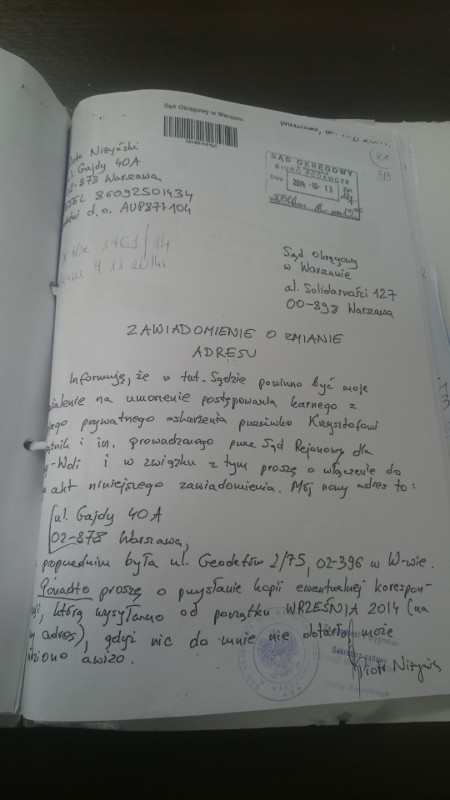 Sąd Okręgowy w Warszawie
Niżyński
Gajdy 40A
878 Warszawa
86092501434
d.o. AUP877104
SĄD OKRĘGOWY
2014-10-13
Sąd Okręgowy
w Warszawie
al. Solidarności 127
00-898 Warszawa
ZAWIADOMIENIE O ZMIANIE
ADRESU
Informuję, że w tut. Sądzie powinno być moje
na umorzenie postępowania karnego z
prywatnego oskarżenia przeciwko Krzysztofowi
i in. prowadzonego przez Sąd Rejonowy dla
Woli i w związku z tym proszę o włączenie do
akt niniejszego zawiadomienia. Mój nowy adres to:
ul. Gajdy 40A
02-878 Warszawa,
poprzednim była ul. Geodetów 2/75, 02-396 w W-wie.
Ponadto proszę o przysłanie kopii ewentualnej korespon-
którą wysyłano od początku WRZEŚNIA 2014 (na
adres), gdyż nic do mnie nie dotarło, może
awizo.
Piotr Niżyński